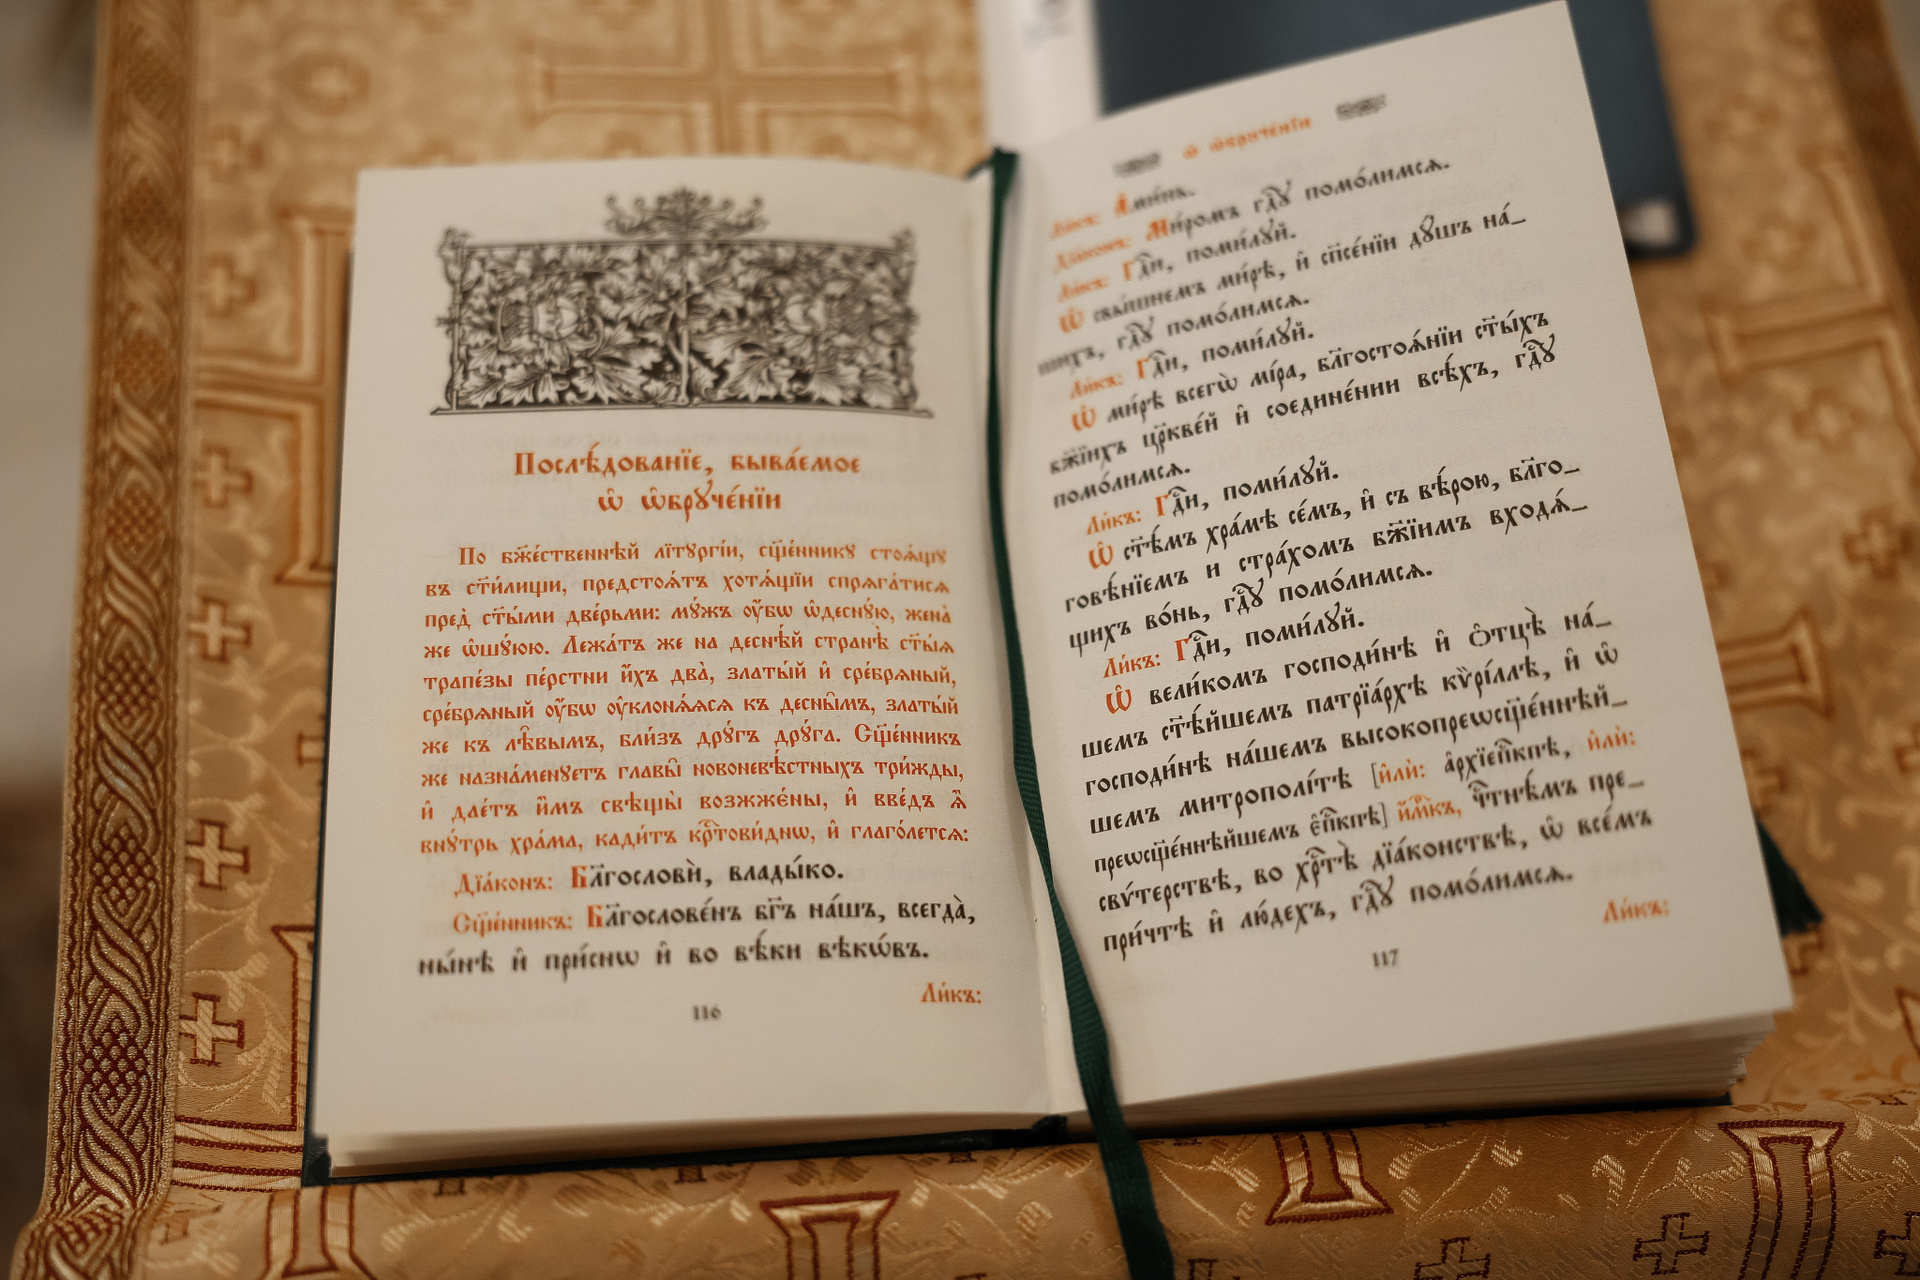 Послѣ́дованїе, быва́емое
ѡ҆ ѡ҆брꙋче́нїи
По бж҃е́ственнѣй лїтꙋргі́и, сщ҃е́нникꙋ стоѧ́щꙋ
въ ст҃и́лищи, предстоѧ́тъ хотѧ́щїи спрѧга́тисѧ
пред̾ ст҃ы́ми две́рьми: мꙋ́жъ ᲂу҆́бѡ ѡ҆деснꙋ́ю, жена̀
же ѡ҆шꙋ́юю. Лежа́тъ же на деснѣ́й странѣ̀ ст҃ы́ѧ
трапе́зы пе́рстни и҆́хъ два̀, златы́й и҆ сре́брѧный,
сре́брѧный ᲂу҆́бѡ ᲂу҆клонѧ́ѧсѧ къ десны̑мъ, златы́й
же къ лѣ̑вымъ, бли́зъ дрꙋ́гъ дрꙋ́га. Сщ҃е́нникъ
же назна́менꙋетъ главы̑ новоневѣ́стныхъ три́жды,
и҆ дае́тъ и҆̀мъ свѣщы̀ возжжє́ны, и҆ вве́дъ ѧ҆̀
внꙋ́трь хра́ма, кади́тъ крⷭ҇тови́днѡ, и҆ глаго́летсѧ:
Дїа́конъ: Бл҃гословѝ, влады́ко.
Сщ҃е́нникъ: Бл҃гослове́нъ бг҃ъ на́шъ, всегда̀,
ны́нѣ и҆ при́снѡ и҆ во вѣ́ки вѣкѡ́въ.
Ли́къ:
116
ѡ҆ ѡ҆брꙋче́нїи
Ли́къ: А҆ми́нь.
Дїа́конъ: Ми́ромъ гдⷭ҇ꙋ помо́лимсѧ.
Ли́къ: Гдⷭ҇и, поми́лꙋй.
Ѡ҆ свы́шнемъ ми́рѣ, и҆ сп҃се́нїи дꙋ́шъ на́_
шихъ, гдⷭ҇ꙋ помо́лимсѧ.
Ли́къ: Гдⷭ҇и, поми́лꙋй.
Ѡ҆ ми́рѣ всегѡ̀ мі́ра, бл҃госто́ѧнїи ст҃ы́хъ
бж҃їихъ цр҃кве́й и҆ соедине́нии всѣ́хъ, гдⷭ҇ꙋ
помо́лимсѧ.
Ли́къ: Гдⷭ҇и, поми́лꙋй.
Ѡ҆ ст҃ѣ́мъ хра́мѣ се́мъ, и҆ съ вѣ́рою, бл҃го_
говѣ́нїемъ и стра́хомъ бж҃їимъ входѧ́_
щихъ во́нь, гдⷭ҇ꙋ помо́лимсѧ.
Ли́къ: Гдⷭ҇и, поми́лꙋй.
Ѡ҆ вели́комъ господи́нѣ и҆ ѻ҆тцѣ̀ на́_
шемъ ст҃ѣ́йшемъ патрїа́рхѣ кѷрі́ллѣ, и҆ ѡ҆
господи́нѣ на́шемъ высокопреѡсщ҃е́ннѣй_
шемъ митрополі́тѣ [и҆лѝ: а҆рхїепⷭ҇кпѣ, и҆лѝ:
преѡсщ҃е́ннѣйшемъ є҆пⷭ҇кпѣ] и҆́м҃къ, чⷭ҇тнѣ́мъ пре_
сви́терствѣ, во хрⷭ҇тѣ̀ дїа́конствѣ, ѡ҆ все́мъ
при́чтѣ и҆ лю́дехъ, гдⷭ҇ꙋ помо́лимсѧ.
Ли́къ:
117